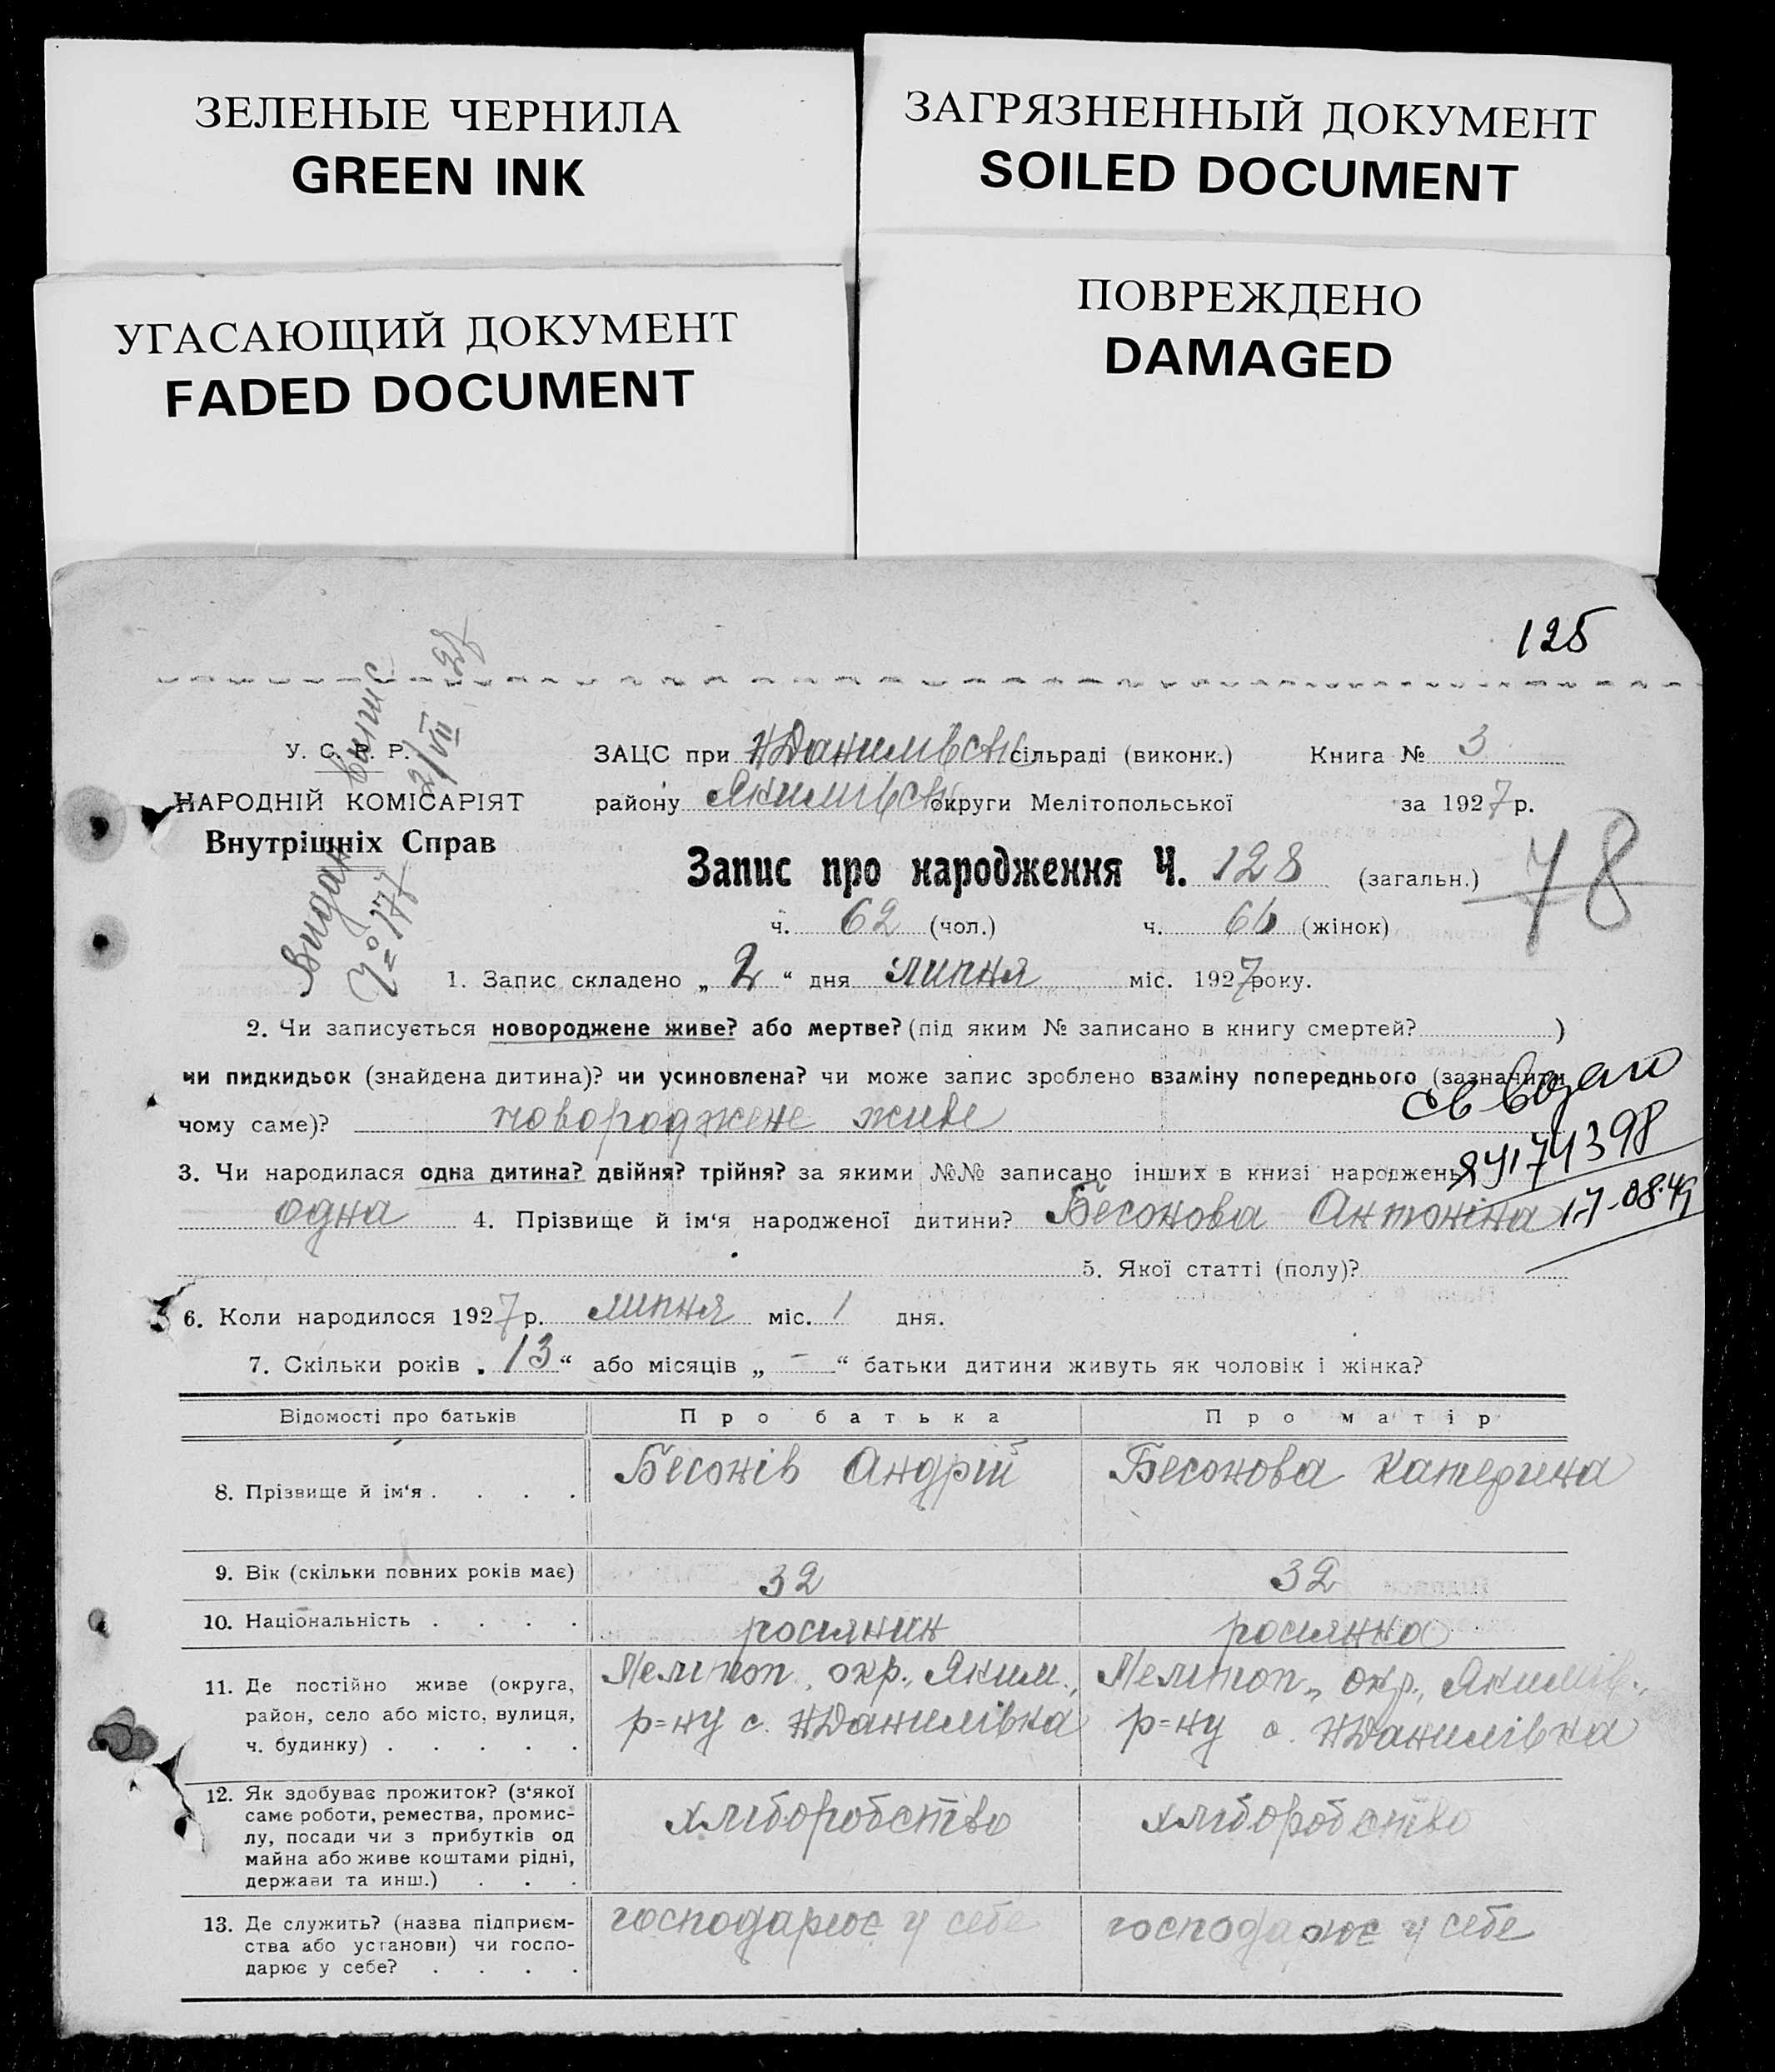 ЗЕЛЕНЫЕ ЧЕРНИЛА
GREEN INK
ЗАГРЯЗНЕННЫЙ ДОКУМЕНТ
SOILED DOCUMENT
УГАСАЮЩИЙ ДОКУМЕНТ
FADED DOCUMENT
ПОВРЕЖДЕНО
DAMAGED
125
Видан випис
Ч= 177 2/VII 27
У. С. Р. Р.
НАРОДНІЙ КОМІСАРІЯТ
Внутрішніх Справ
ЗАЦС при НДанилівськ сільраді (виконк.) Книга № 3
району Якимівськ округи Мелітопольської за 1927 р.
Запис про народження Ч. 128 (загальн.)
78
ч. 62 (чол.) ч. 66 (жінок)
1. Запис складено „ 2 “ дня липня міс. 1927 року.
2. Чи записується новороджене живе? або мертве? (під яким № записано в книгу смертей? )
чи пидкидьок (знайдена дитина)? чи усиновлена? чи може запис зроблено взаміну попереднього (зазначити
чому саме)? новороджене живе
3. Чи народилася одна дитина? двійня? трійня? за якими №№ записано інших в книзі народжень
одна 4. Прізвище й ім‘я народженої дитини? Бесонова Антоніна
5. Якої статті (полу)?
6. Коли народилося 1927 р. липня міс. 1 дня.
7. Скільки років „ 13 “ або місяців „ - “ батьки дитини живуть як чоловік і жінка?
Відомості про батьків Про батька Про матір
8. Прізвище й ім‘я . . . . Бесонів Андрій Бесонова Катерина
9. Вік (скільки повних років має) 32 32
10. Національність . . . . росіянин росіянка
11. Де постійно живе (округа,
район, село або місто, вулиця,
ч. будинку) . . . . .
Мелітоп. окр., Яким.,
р=ну с. НДанилівка
Мелітоп., окр., Якимів.,
р=ну с. НДанилівка
12. Як здобуває прожиток? (з‘якої
саме роботи, ремества, промис-
лу, посади чи з прибутків од
майна або живе коштами рідні,
держави та инш.) . . .
хліборобство хліборобство
13. Де служить? (назва підприєм-
ства або установи) чи госпо-
дарює у себе? . . . .
господарює у себе господарює у себе